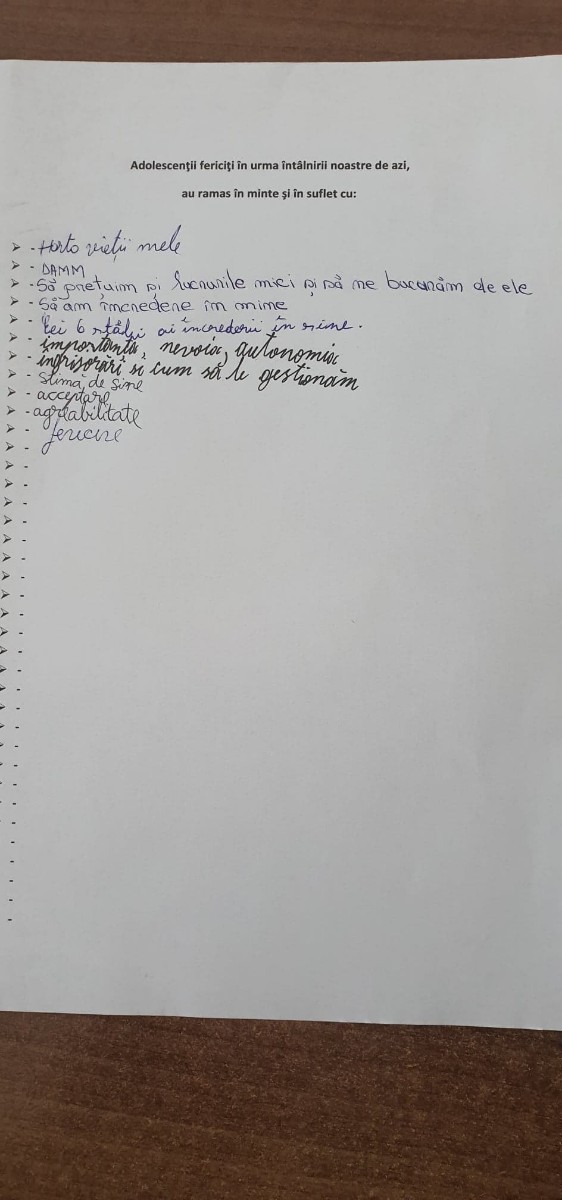 Adolescenţii fericiţi în urma întâlnirii noastre de azi,
au ramas în minte şi în suflet cu:
- Harta vieții mele
- DAMM
- Să prețuim și lucrurile mici și să ne bucurăm de ele
- Să am încredere în mine
- Cei 6 stâlpi ai încrederii în sine.
- importanta, nevoia, autonomia
- îngrijorări si cum să le gestionăm
- Stima de sine
- acceptare
- agreabilitate
- fericire